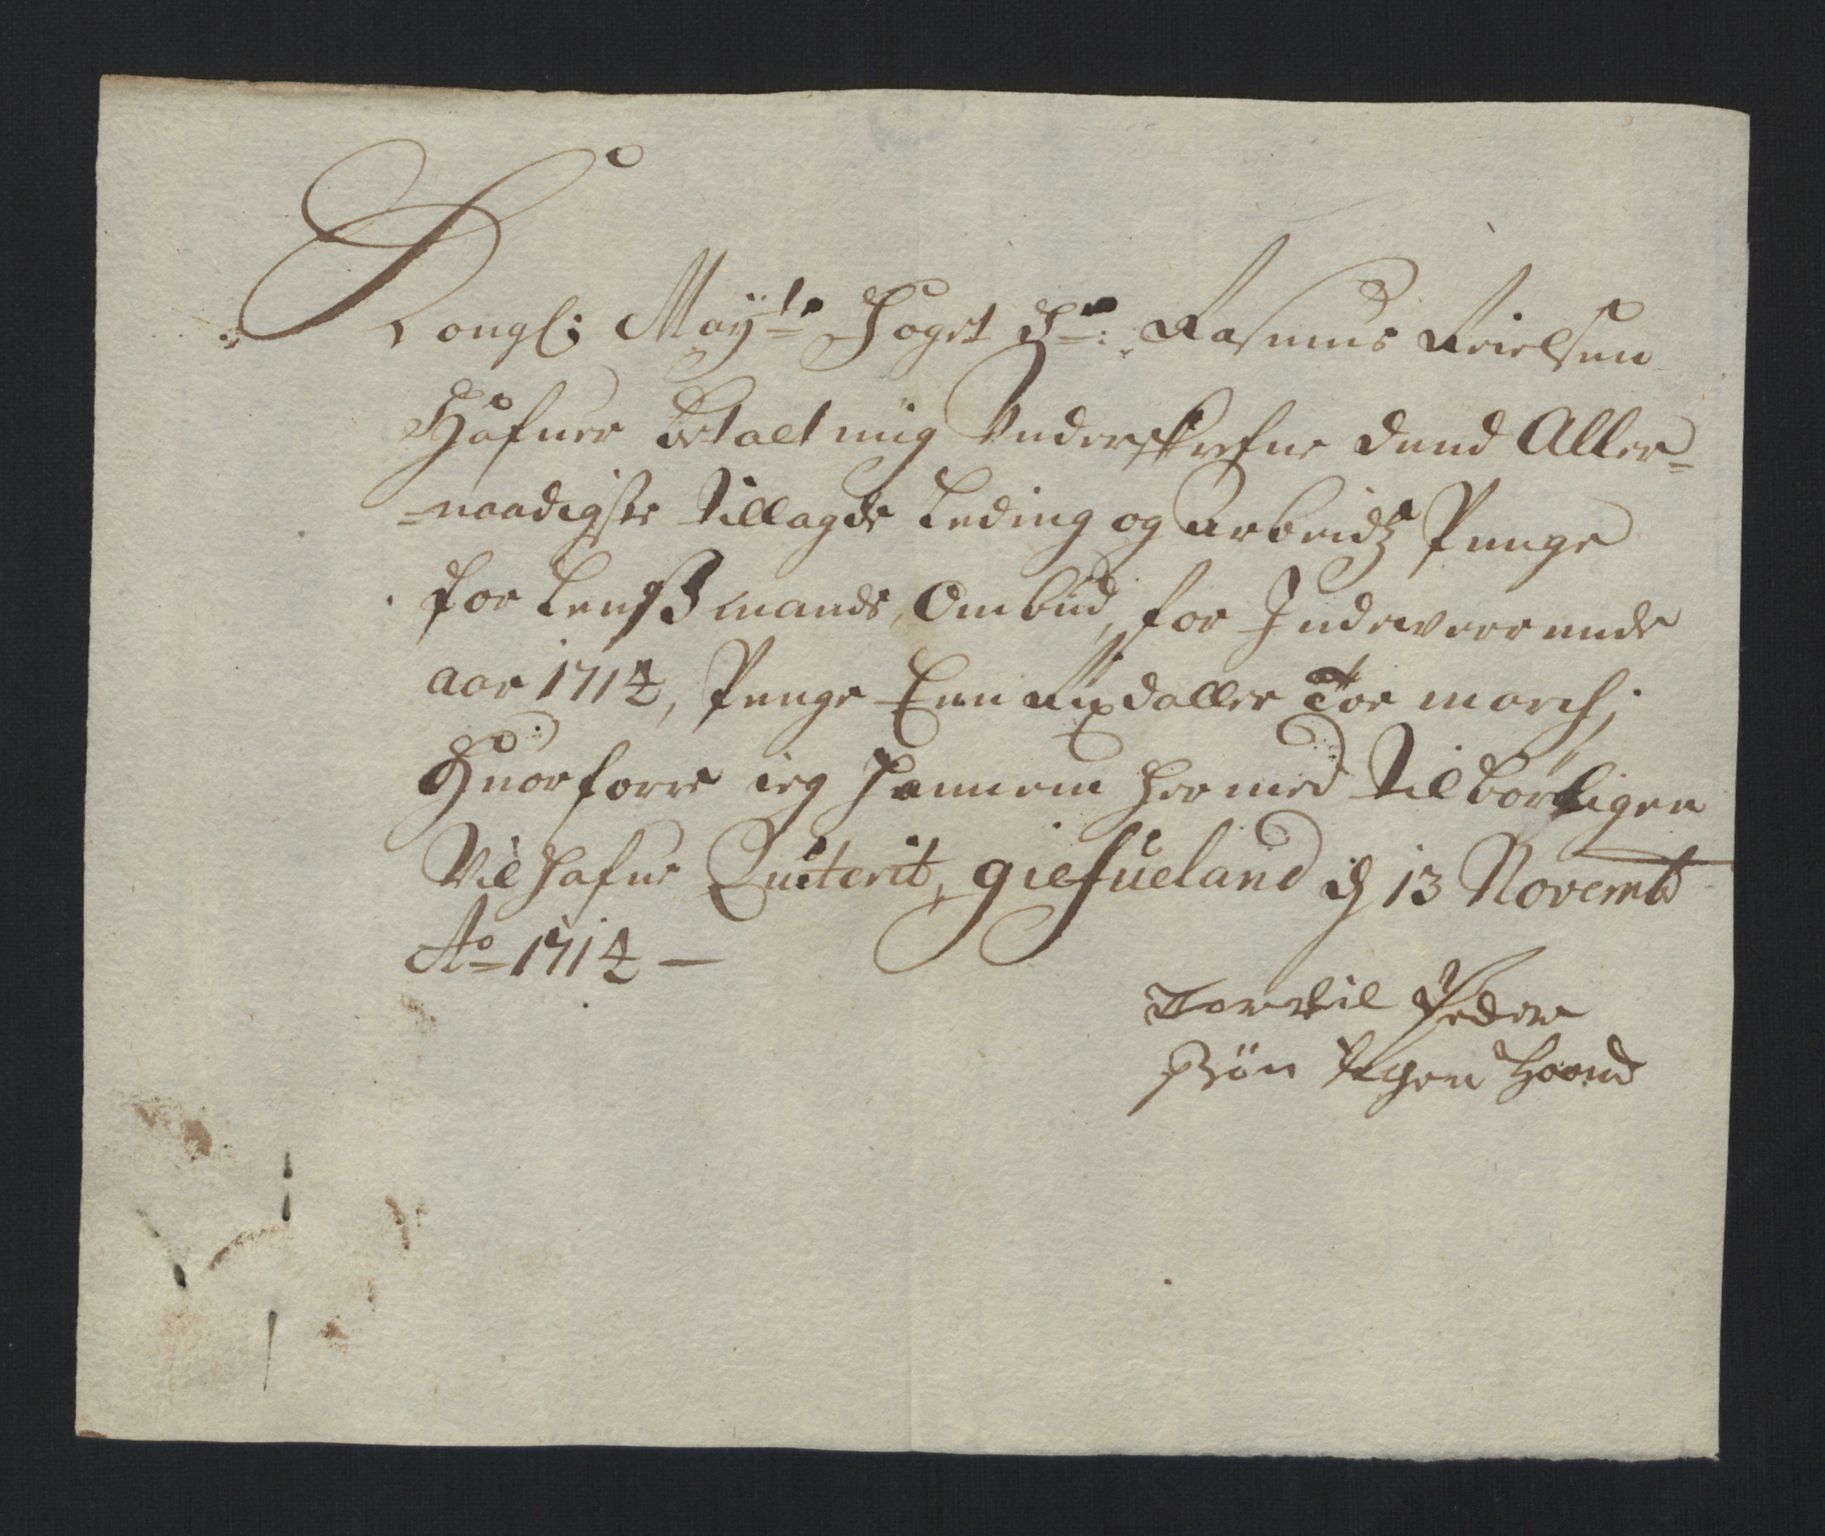 Kongl: May:ts Foget Sr: Rasmus Nielsen
Hafuer betalt mig Underskrefne dend Aller-
-naadigste tillagde Leding og Arbeidtz Penge
for Lenßmands Ombud, for Indeverrende
aar 1714, Penge Een Rixdaller Toe march;
Huorforre ieg hannem hermed tilbørligen
Vil hafue Quiterit, giefueland d 13 Novemb
Ao 1714 —
Torkil Peder
søn Egen Haand